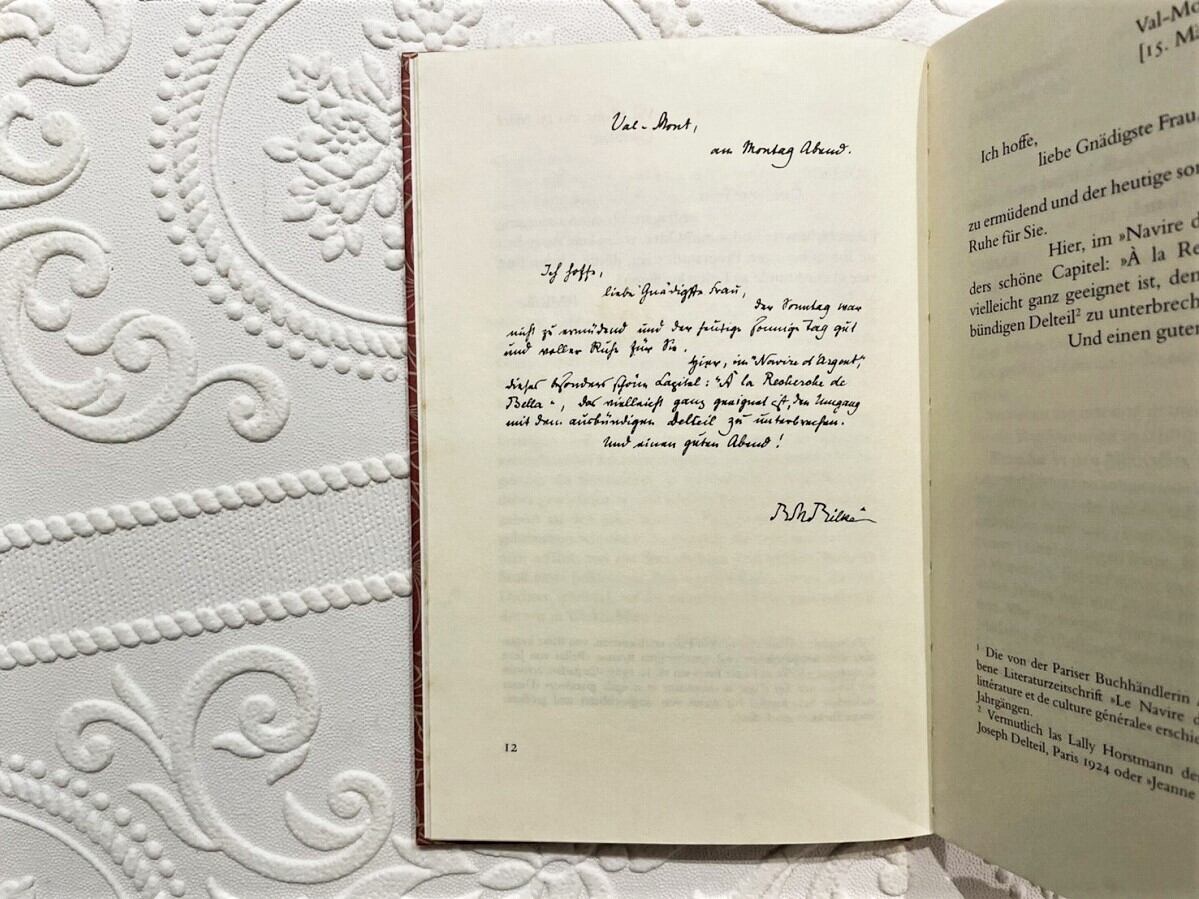 Val-Mont,
am Montag Abend.
Ich hoffe,
liebe Gnädigste Frau,
der Sonntag war
nicht zu ermüdend und der heutige sonnige Tag gut
und voller Ruhe für Sie.
Hier, im "Navire d'Argent",
dieses besonders schöne Capitel: "À la Recherche de
Bella", das vielleicht ganz geeignet ist, den Umgang
mit dem ausbündigen Delteil zu unterbrechen.
Und einen guten Abend!
RMRilke
12
Val-Mo
[15. Mä
Ich hoffe,
liebe Gnädigste Frau,
zu ermüdend und der heutige son
Ruhe für Sie.
Hier, im »Navire d
ders schöne Capitel: »À la Re
vielleicht ganz geeignet ist, den
bündigen Delteil² zu unterbrech
Und einen guten
¹ Die von der Pariser Buchhändlerin
bene Literaturzeitschrift »Le Navire d
littérature et de culture générale« erschie
Jahrgängen.
² Vermutlich las Lally Horstmann de
Joseph Delteil, Paris 1924 oder »Jeanne